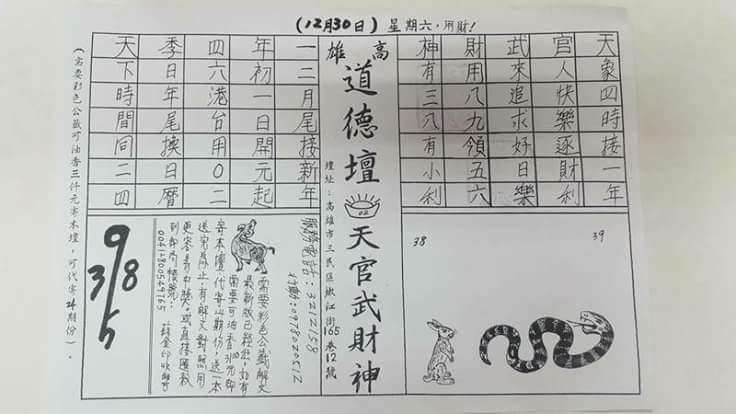 (12月30日)星期六,用財!
天象四時接一年
官人快樂逐財利
武來追求好日樂
財用八九領五六
神有三八有小利
高雄
道德壇
02
天官武財神
壇址:高雄市三民區
街165巷12號
一二月尾接新年
年初一日開元起
四六港台用0二
季日年尾換日曆
天下時間同二四
(需要彩色公籤可油香三仟元寄本壇,可代寄24期份)。
39
38
服務電話:3212158
行動:0978020512
需要彩色公籤解文
最新版已經出,如有
需要可油香
寄本壇,代寄24期份,送一本
送完為止,有解文對照用
更容易中獎。或直接匯款
到郵局帳號:
00412800549765
9
3 8
5